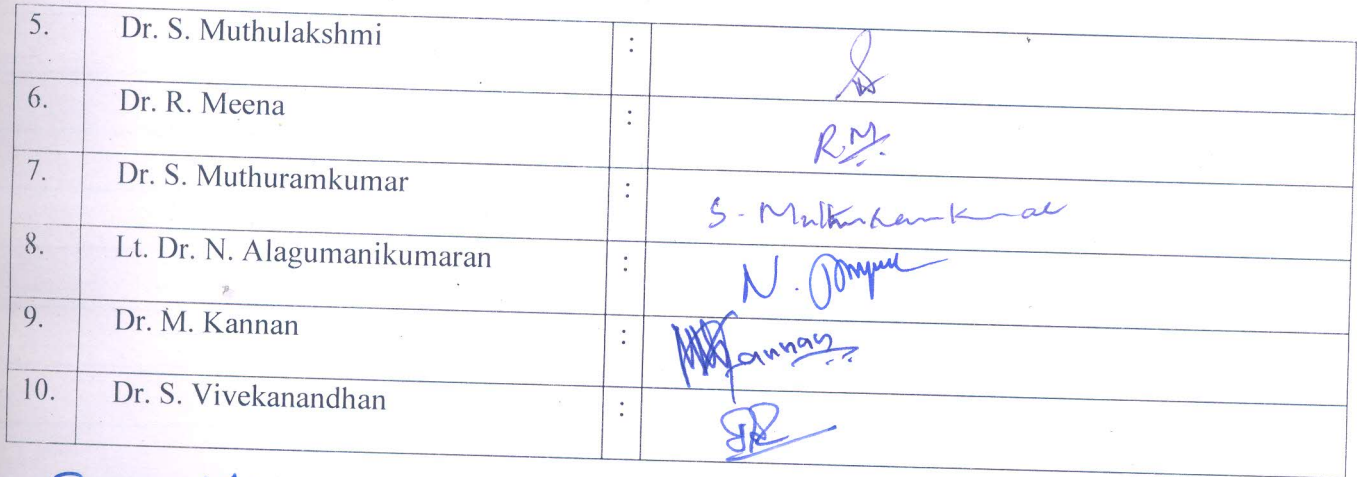 5. Dr. S. Muthulakshmi :
6. Dr. R. Meena : R.M.
7. Dr. S. Muthuramkumar : S. Muthuramkumar
8. Lt. Dr. N. Alagumanikumaran : N.
9. Dr. M. Kannan : M Kannan
10. Dr. S. Vivekanandhan :